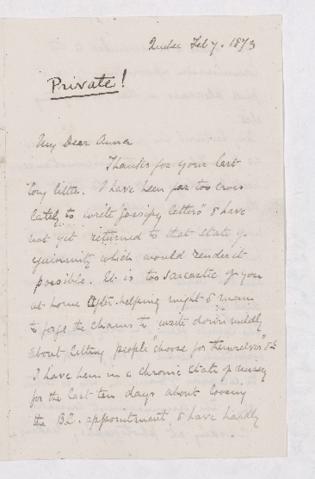 Quebec Feb 7. 1873
Private!
My Dear Anna
Thanks for your last
long letter. I have been far too cross
lately to write "gossipy letters" & have
not yet returned to that state of
equanimity which would render it
possible. It is too sarcastic of you
at home after helping might & main
to forge the chains to write down mildly
about letting people "choose for themselves" &c
I have been in a chronic state of
for the last ten days about
the appointment & have hardly